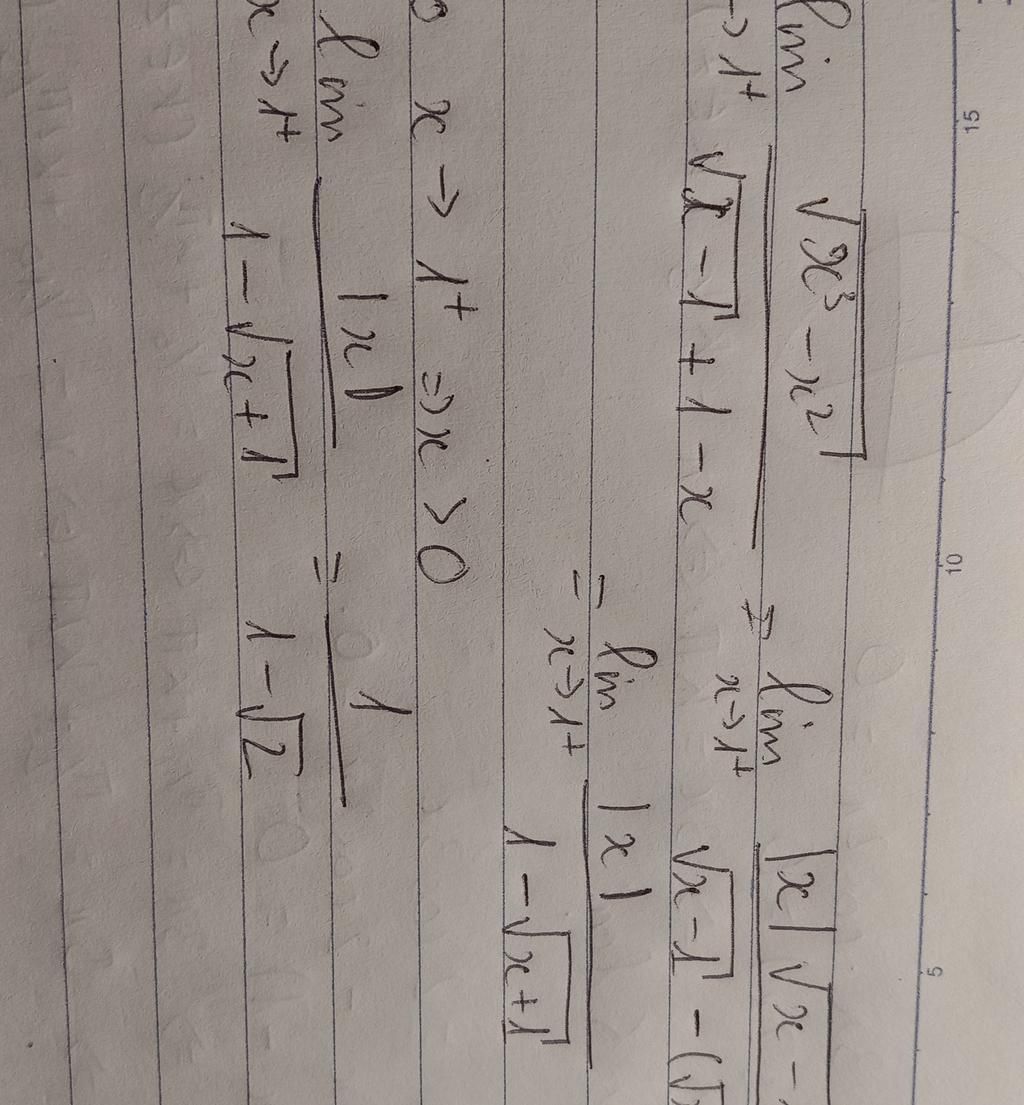 lim x→1⁺ √(x³ - x²) / (√(x - 1) + 1 - x) = lim x→1⁺ |x| √(x - / (√(x - 1) - (√
= lim x→1⁺ |x| / (1 - √(x + 1))
x → 1⁺ ⇒ x > 0
lim x→1⁺ |x| / (1 - √(x + 1)) = 1 / (1 - √2)
15 10 5